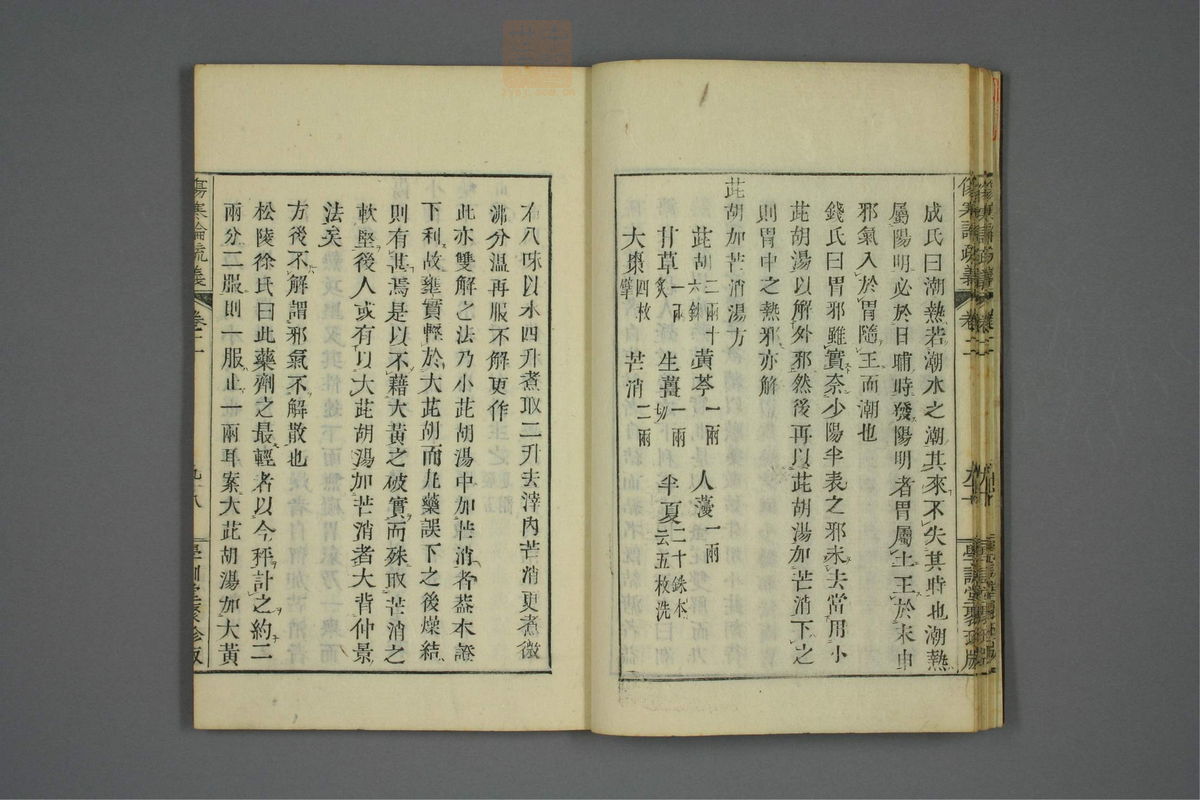 成氏曰潮熱若潮水之潮其來不失其時也潮熱
屬陽明必於日晡時發陽明者胃屬土王於未申
邪氣入於胃隨王而潮也
錢氏曰胃邪雖實奈少陽半表之邪未去當用小
茈胡湯以解外邪然後再以茈胡湯加芒消下之
則胃中之熱邪亦解
茈胡加芒消湯方
茈胡二兩十六銖 黃芩一兩 人薓一兩
甘草一兩炙 生薑一兩切 半夏二十銖本云五枚洗
大棗四枚擘 芒消二兩
傷寒論疏義 卷二
右八味以水四升煮取二升去滓內芒消更煮微
沸分溫再服不解更作
此亦雙解之法乃小茈胡湯中加芒消者蓋本證
下利故雍實鞕於大茈胡而丸藥誤下之後燥結
則有甚焉是以不藉大黃之破實而殊取芒消之
軟堅後人或有以大茈胡湯加芒消者大背仲景
法矣
方後不解謂邪氣不解散也
松陵徐氏曰此藥劑之最輕者以今秤計之約二
兩分二服則一服止一兩耳案大茈胡湯加大黃
傷寒論疏義 卷二 九十八